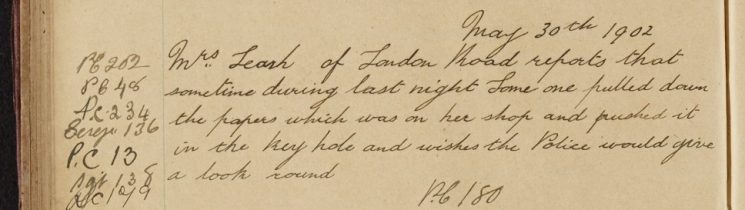 May 30th 1902
PC 202
PC 48
P.C. 234
Sergt 136
P.C 13
Sgt 138
Mrs. Leash of London Road reports that
sometime during last night Some one pulled down
the papers which was on her shop and pushed it
in the key hole and wishes the Police would give
a look round
PC 180